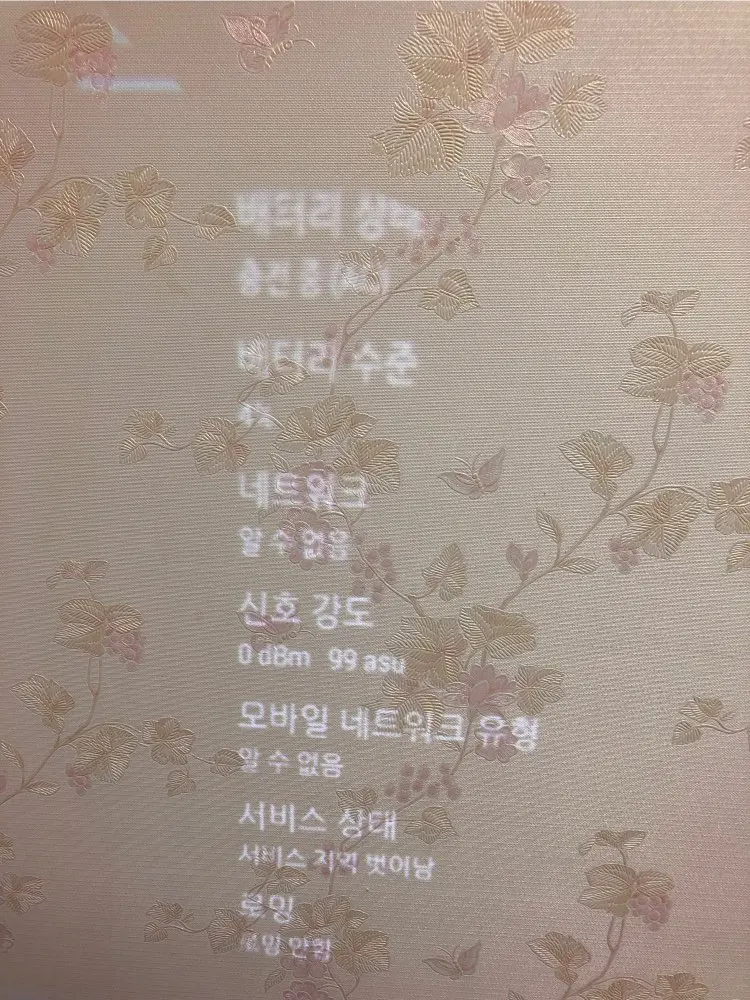 배터리 상태
충전 중
배터리 수준
네트워크
알 수 없음
신호 강도
0 dBm 99 asu
모바일 네트워크 유형
알 수 없음
서비스 상태
서비스 지역 벗어남
로밍
로밍 안함